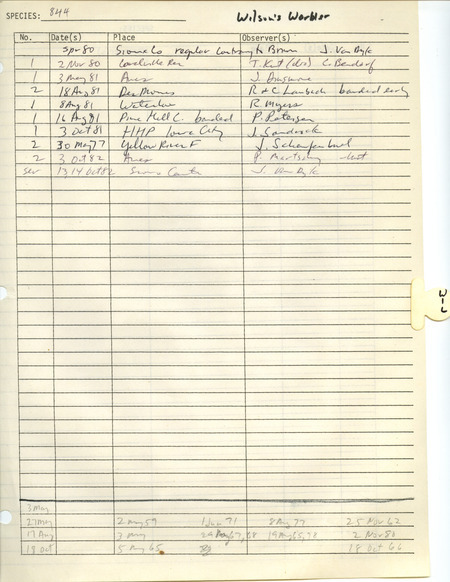 SPECIES: 844 Wilson's Warbler
No. Date(s) Place Observer(s)
Spr 80 Sioux Co regular contrary to Brown J. Van Dyk
1 2 Nov 80 Coralville Res T. Kent (des) C. Bendorf
1 3 May 81 Ames J. Dinsmore
2 18 Aug 81 Des Moines R & C banded early
1 8 Aug 81 Waterloo R. Myers
1 16 Aug 81 Pine Hill C. banded P. Petersen
1 3 Oct 81 HHP Iowa City J. Sandrock
2 30 May 77 Yellow River F J. Schaufenbuel
2 3 Oct 82 Ames P. Martsching
sev 13, 14 Oct 82 Sioux Center J. Van Dyk
W-L
3 May
27 May 2 May 59 1 Jun 71 8 Aug 77 25 Nov 62
17 Aug 3 May 2 Nov 80
18 Oct 5 May 65 18 Oct 66